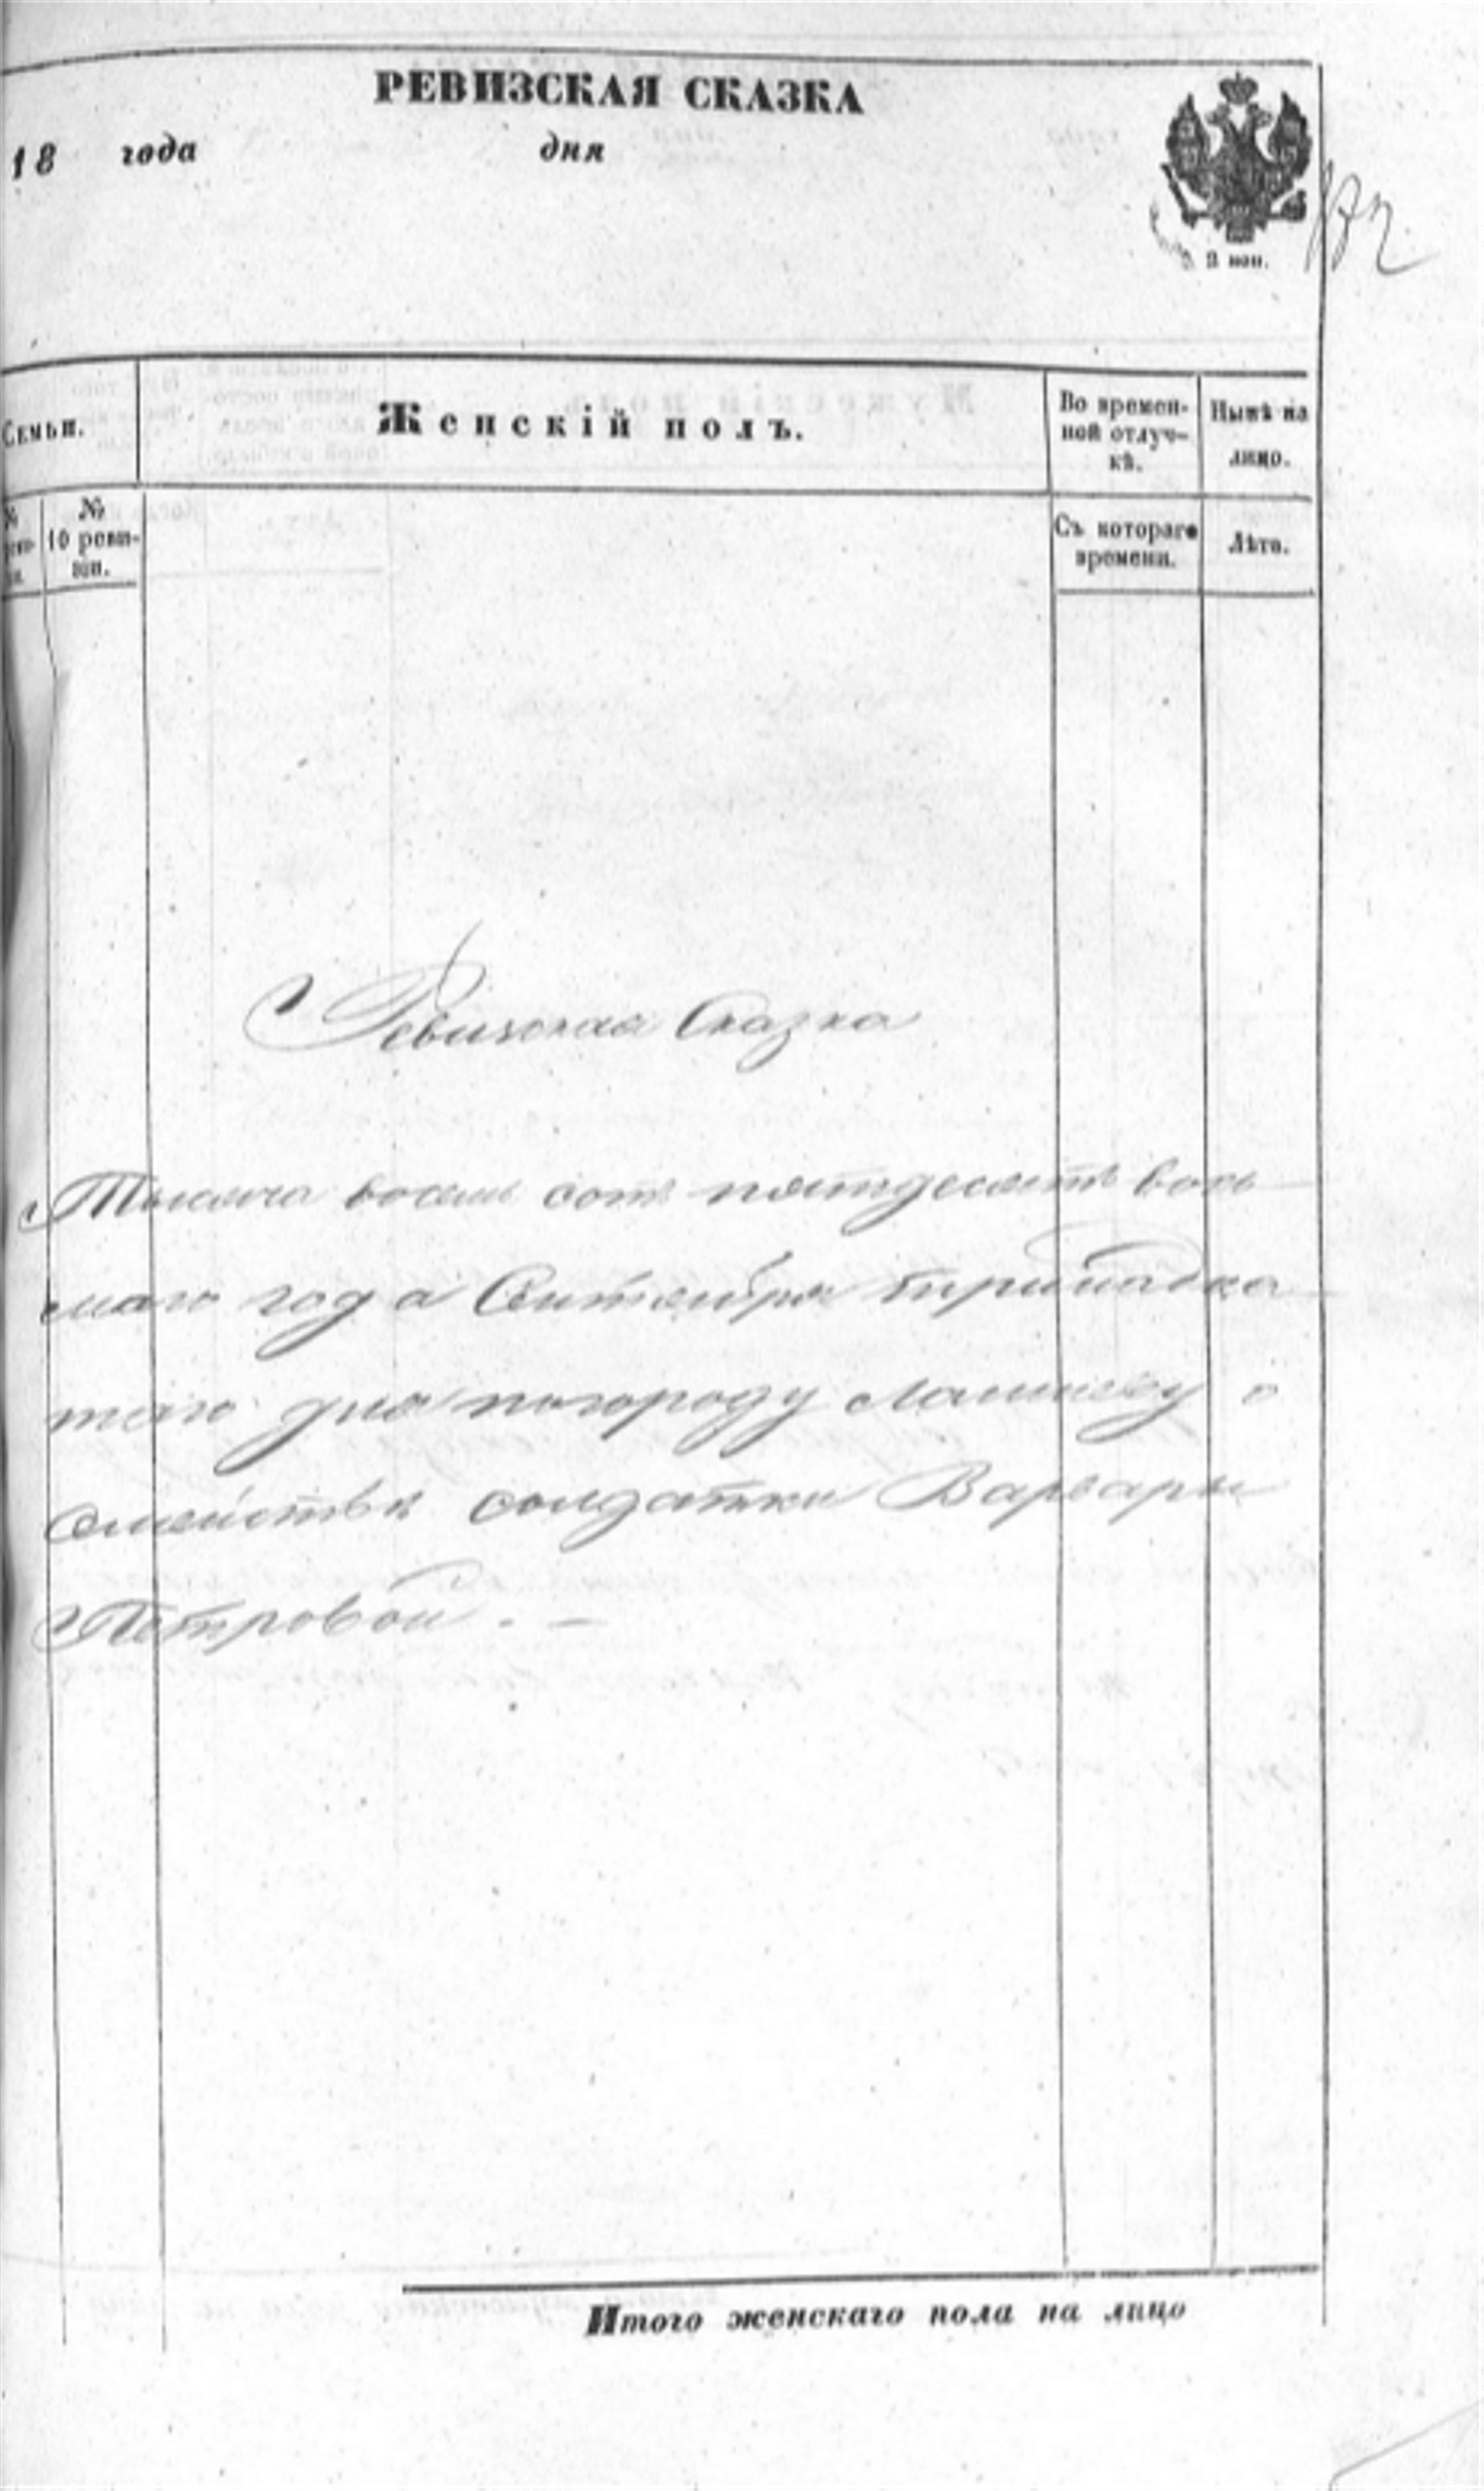 РЕВИЗСКАЯ СКАЗКА
18 года дня
2 коп.
172
Семьи.
Женскій полъ.
Во времен-
ной отлуч-
кѣ.
Нынѣ на
лицо.
№
№
10 реви-
зіи.
Съ котораго
времени.
Лѣта.
Ревизская Сказка
Тысяча восемь сотъ пятдесятъ вось
маго года Сентября тринадца
таго дня по городу Лаишеву о
семействѣ солдатки Варвары
Петровой. —
Итого женскаго пола на лицо